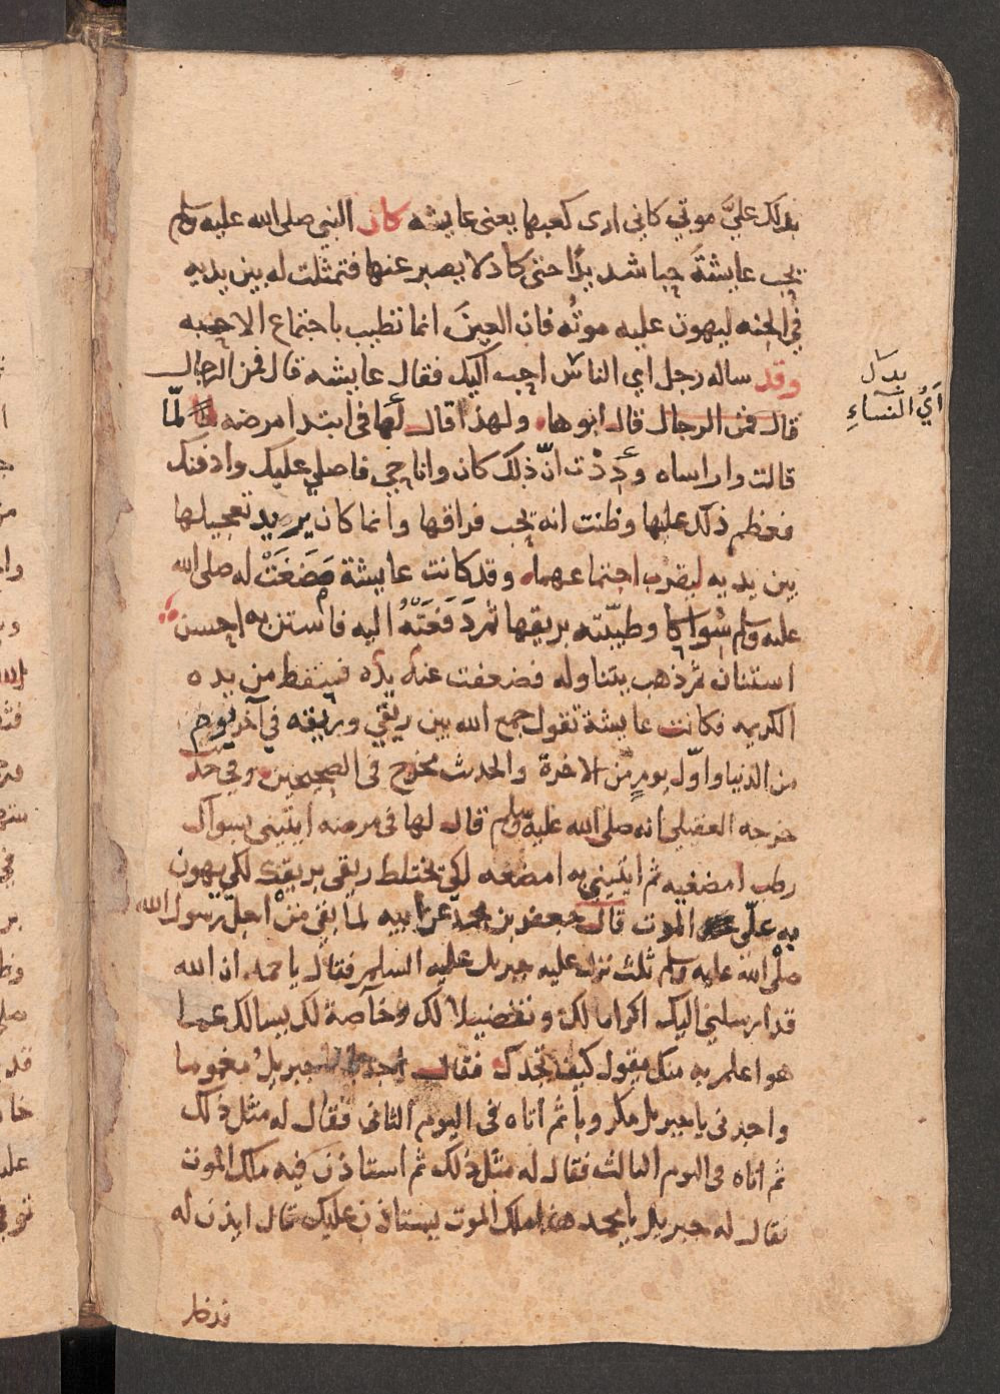 بذلك عليَّ موتي كاني ارى كفيها يعني عايشه كان النبي صلى الله عليه وسلم
يحب عايشةَ حبا شديدًا حتى كاد لا يصبر عنها فتمثلت له بين يديه
في الجنه ليهون عليه موتُه فان العيشَ انما تطيب باجتماع الاحبه
وقد ساله رجل اي الناس احب اليك فقال عايشه قال فمن الرجال
قال فمن الرجال قال ابوها ولهذا قال لها في ابتدا مرضه لمّا
قالت واراساه وَدِدْت انّ ذلك كان وانا حي فاصلي عليك وادفنك
فعظم ذلك عليها وظنت انه يحب فراقها وانما كان يريد تعجيلها
بين يديه ليقرب اجتماعهما وقد كانت عايشة مَضَغَتْ له صلى الله
عليه وسلم سواكا وطيبّته بريقها ثم دَفَعَتْهُ اليه فاستن به احسن
استنان ثم ذهب يتناوله فضعفت عنه يده فسقط من يده
الكريمه فكانت عايشة تقول جمع الله بين ريقي وريقه في آخر يوم
من الدنيا واوّل يومٍ من الاخرة والحدث مخرج في الصحيحين وفي حد
خرجه العقيلي انه صلى الله عليه وسلم قال لها في مرضه ايتيني بسواك
رطب امضغيه ثم ايتيني به امضغه لكي يختلط ريقي بريقك لكي يهون
به عليّ الموت قال جعفر بن محمد عن ابيه لما بقي من اجل رسول الله
صلى الله عليه وسلم ثلث نزل عليه جبريل عليه السلم فقال يا احمد ان الله
قد ارسلني اليك اكراما لك وتفضيلا لك وخآصة لك يسالك عما
هو اعلم به منك يقول كيف تجدك فقال اجدني يا جبريل مغموما
واجدني يا جبريل مكروبا ثم اتاه في اليوم الثاني فقال له مثل ذلك
ثم اتاه في اليوم الثالث فقال له مثل ذلك ثم استاذن فيه ملك الموت
فقال له جبريل يا محمد هذا ملك الموت يستاذن عليك قال ايذن له
بدل
اَيُّ النساءِ
فدخل